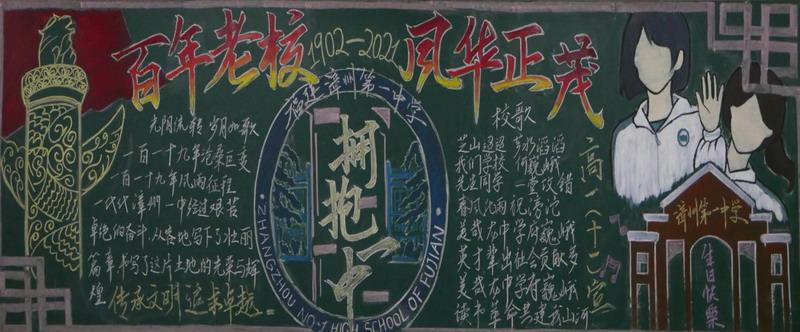 百年老校 1902-2021 风华正茂
福建漳州第一中学
ZHANGZHOU NO.1 HIGH SCHOOL OF FUJIAN
拥抱一中
光阴流转 岁月如歌
一百一十九年沧桑巨变
一百一十九年风雨征程
一代代漳州一中经过艰苦
卓绝的奋斗,从容地写下了壮丽
篇章书写了这片土地的光荣与辉
煌 传承文明 追求卓越
校歌
芝山迢迢 芗水滔滔
我们学校 何巍峨
先生同学 一堂攻错
春风化雨祝滂沱
美哉左中 学府巍峨
英才辈出社会贡献多
美哉左中学府巍峨
读书革命共建我山河
高一(十二)宣
漳州第一中学
生日快乐